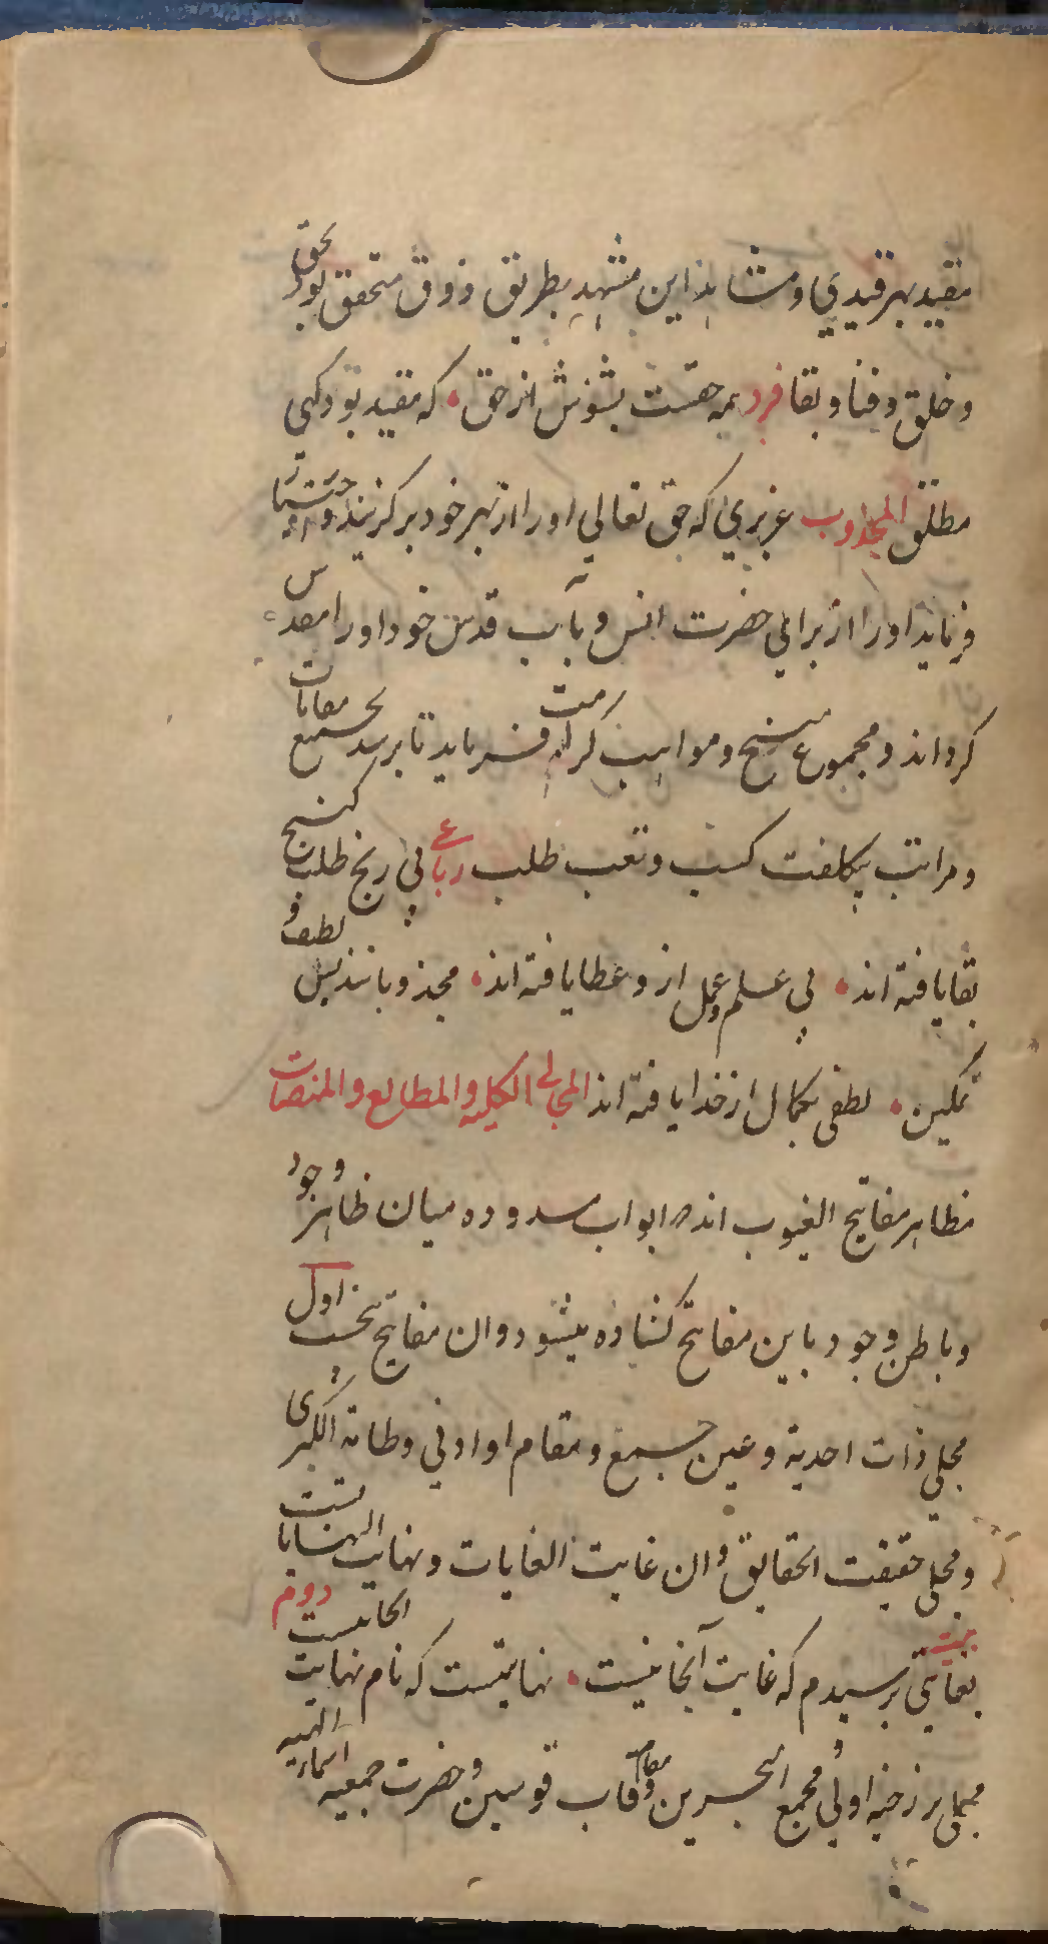 مقید بهر قیدی و مشاهد این مشهد بطریق ذوق متحقق بود بحق
و خلق و فنا و بقا فرد همه حقست بشنوش از حق که مقید بود کهی
مطلق المجذوب عزیزی که حق تعالی اورا از بهر خود برگزیند و
فرماید اورا از برای حضرت انس و بآب قدس خود اورا مقدس
گرداند و مجموع منح و مواهب کرامت فرماید تا برسد بجمیع مقامات
و مراتب بیکلفت کسب و تعب طلب رباعی بی رنج طلب گنج
بقا یافته اند بی علم و عمل ازو عطا یافته اند مجذوبانند لطف و
تمکین لطفی بکمال از خدا یافته اند المجالی الکلیه والمطالع والمنصات
مظاهر مفاتیح الغیوب اند که ابواب مسدوده میان ظاهر وجود
و باطن وجود باین مفاتح گشاده میشود و ان مفاتیح پنجست اول
مجلی ذات احدیة و عین جمع و مقام او ادنی و طامة الکبری
و مجلی حقیقت الحقایق و ان غایت الغایات و نهایت النهایاتست
بیت بغایتی برسیدم که غایت آنجا نیست نهایتیست که نام نهایت انجا نیست دوم
مجلی برزخیه اولی و مجمع البحرین و مقام قاب قوسین و حضرت جمعیه اسماء الهیه